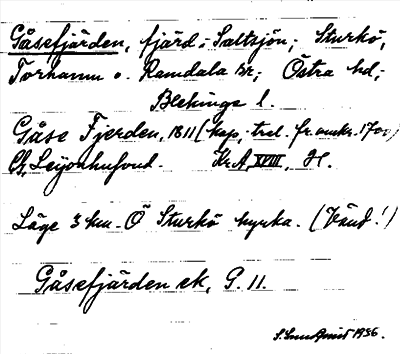 Gåsefjärden, fjärd i Saltsjön, Sturkö,
Torhamn o. Ramdala sr, Östra hd,
Blekinge l.
Gåse Fjerden, 1811 (kop. trol. fr. omkr. 1700)
Leijonhufvud. Kr A, XVIII, H.
Läge 3 km. Ö Sturkö kyrka. (Vänd!)
Gåsefjärden ek, G. 11.
S. Sundqvist 1936.